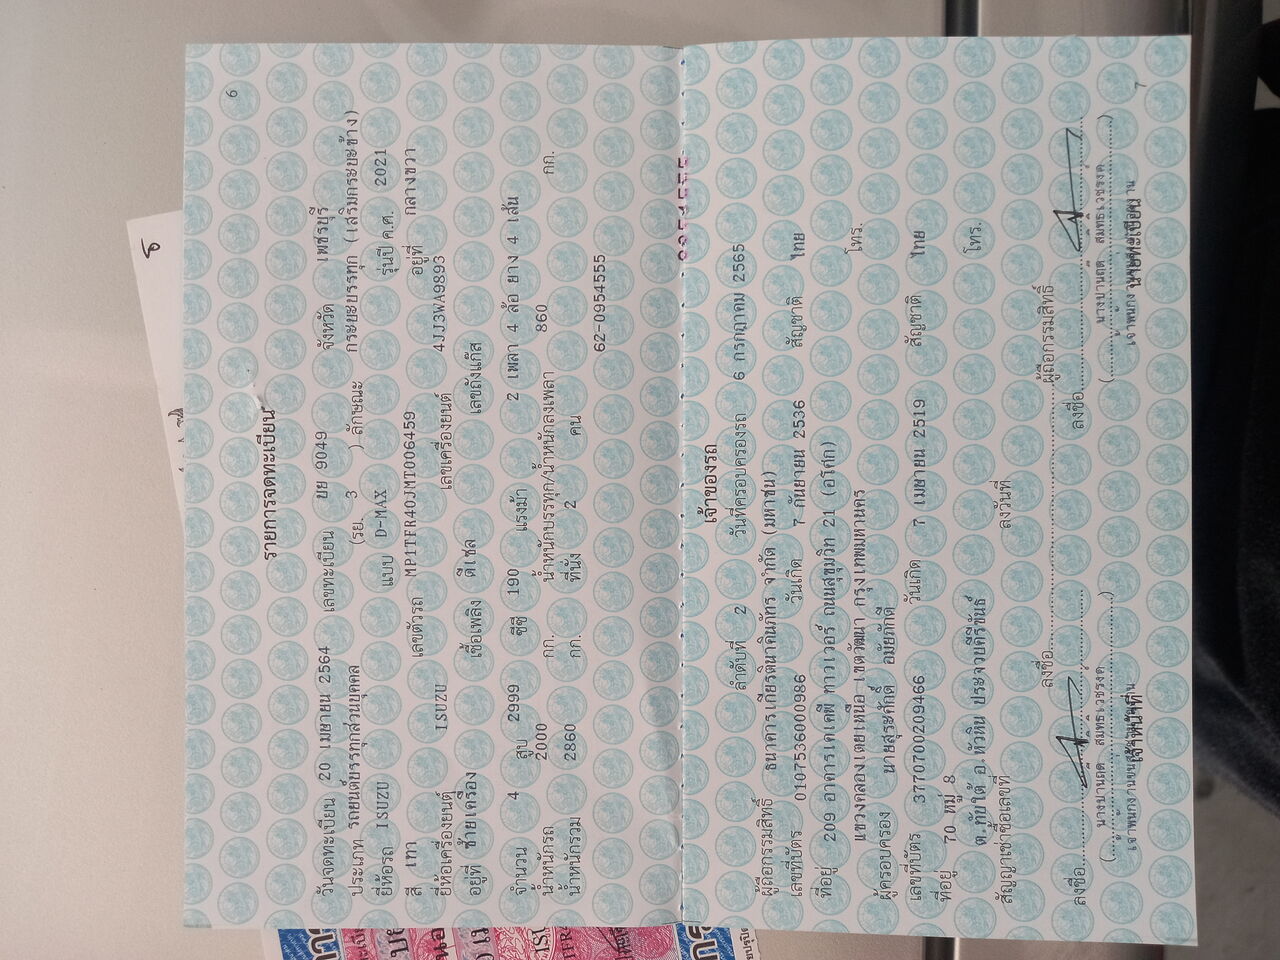 6
รายการจดทะเบียน
วันจดทะเบียน 20 เมษายน 2564 เลขทะเบียน ขย 9049 จังหวัด เพชรบุรี
ประเภท รถยนต์บรรทุกส่วนบุคคล (รย. 3 ) ลักษณะ กระบะบรรทุก (เสริมกระบะข้าง)
ยี่ห้อรถ ISUZU แบบ D-MAX รุ่นปี ค.ศ. 2021
สี เทา เลขตัวรถ MP1TFR40JMT006459 อยู่ที่ กลางขวา
ยี่ห้อเครื่องยนต์ ISUZU เลขเครื่องยนต์ 4JJ3WA9893
อยู่ที่ ซ้ายเครื่อง เชื้อเพลิง ดีเซล เลขถังแก๊ส
จำนวน 4 สูบ 2999 ซีซี 190 แรงม้า 2 เพลา 4 ล้อ ยาง 4 เส้น
น้ำหนักรถ 2000 กก. น้ำหนักบรรทุก/น้ำหนักลงเพลา 860 กก.
น้ำหนักรวม 2860 กก. ที่นั่ง 2 คน
62-0954555
เจ้าของรถ
ลำดับที่ 2 วันที่ครอบครองรถ 6 กรกฎาคม 2565
ผู้ถือกรรมสิทธิ์ ธนาคารเกียรตินาคินภัทร จำกัด (มหาชน)
เลขที่บัตร 0107536000986 วันเกิด 7 กันยายน 2536 สัญชาติ ไทย
ที่อยู่ 209 อาคารเคเคพี ทาวเวอร์ ถนนสุขุมวิท 21 (อโศก)
แขวงคลองเตยเหนือ เขตวัฒนา กรุงเทพมหานคร โทร.
ผู้ครอบครอง นายสุระศักดิ์ อมยภักดี
เลขที่บัตร 3770700209466 วันเกิด 7 เมษายน 2519 สัญชาติ ไทย
ที่อยู่ 70 หมู่ 8
ต.ทับใต้ อ.หัวหิน ประจวบคีรีขันธ์ โทร.
สัญญาเช่าซื้อเลขที่ ลงวันที่
ลงชื่อ ผู้ถือกรรมสิทธิ์
ลงชื่อ ลงชื่อ
7